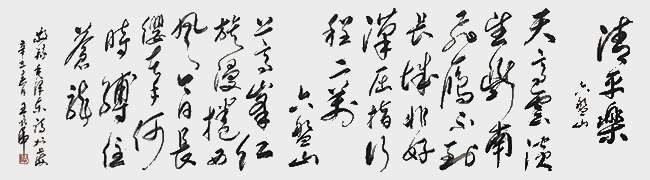 清平樂
六盤山
天高雲淡
望斷南
飛雁不到
長城非好
漢屈指行
程二萬
六盤山
上高峰紅
旗漫捲西
風今日長
纓在手何
時縛住
蒼龍
毛澤東詩